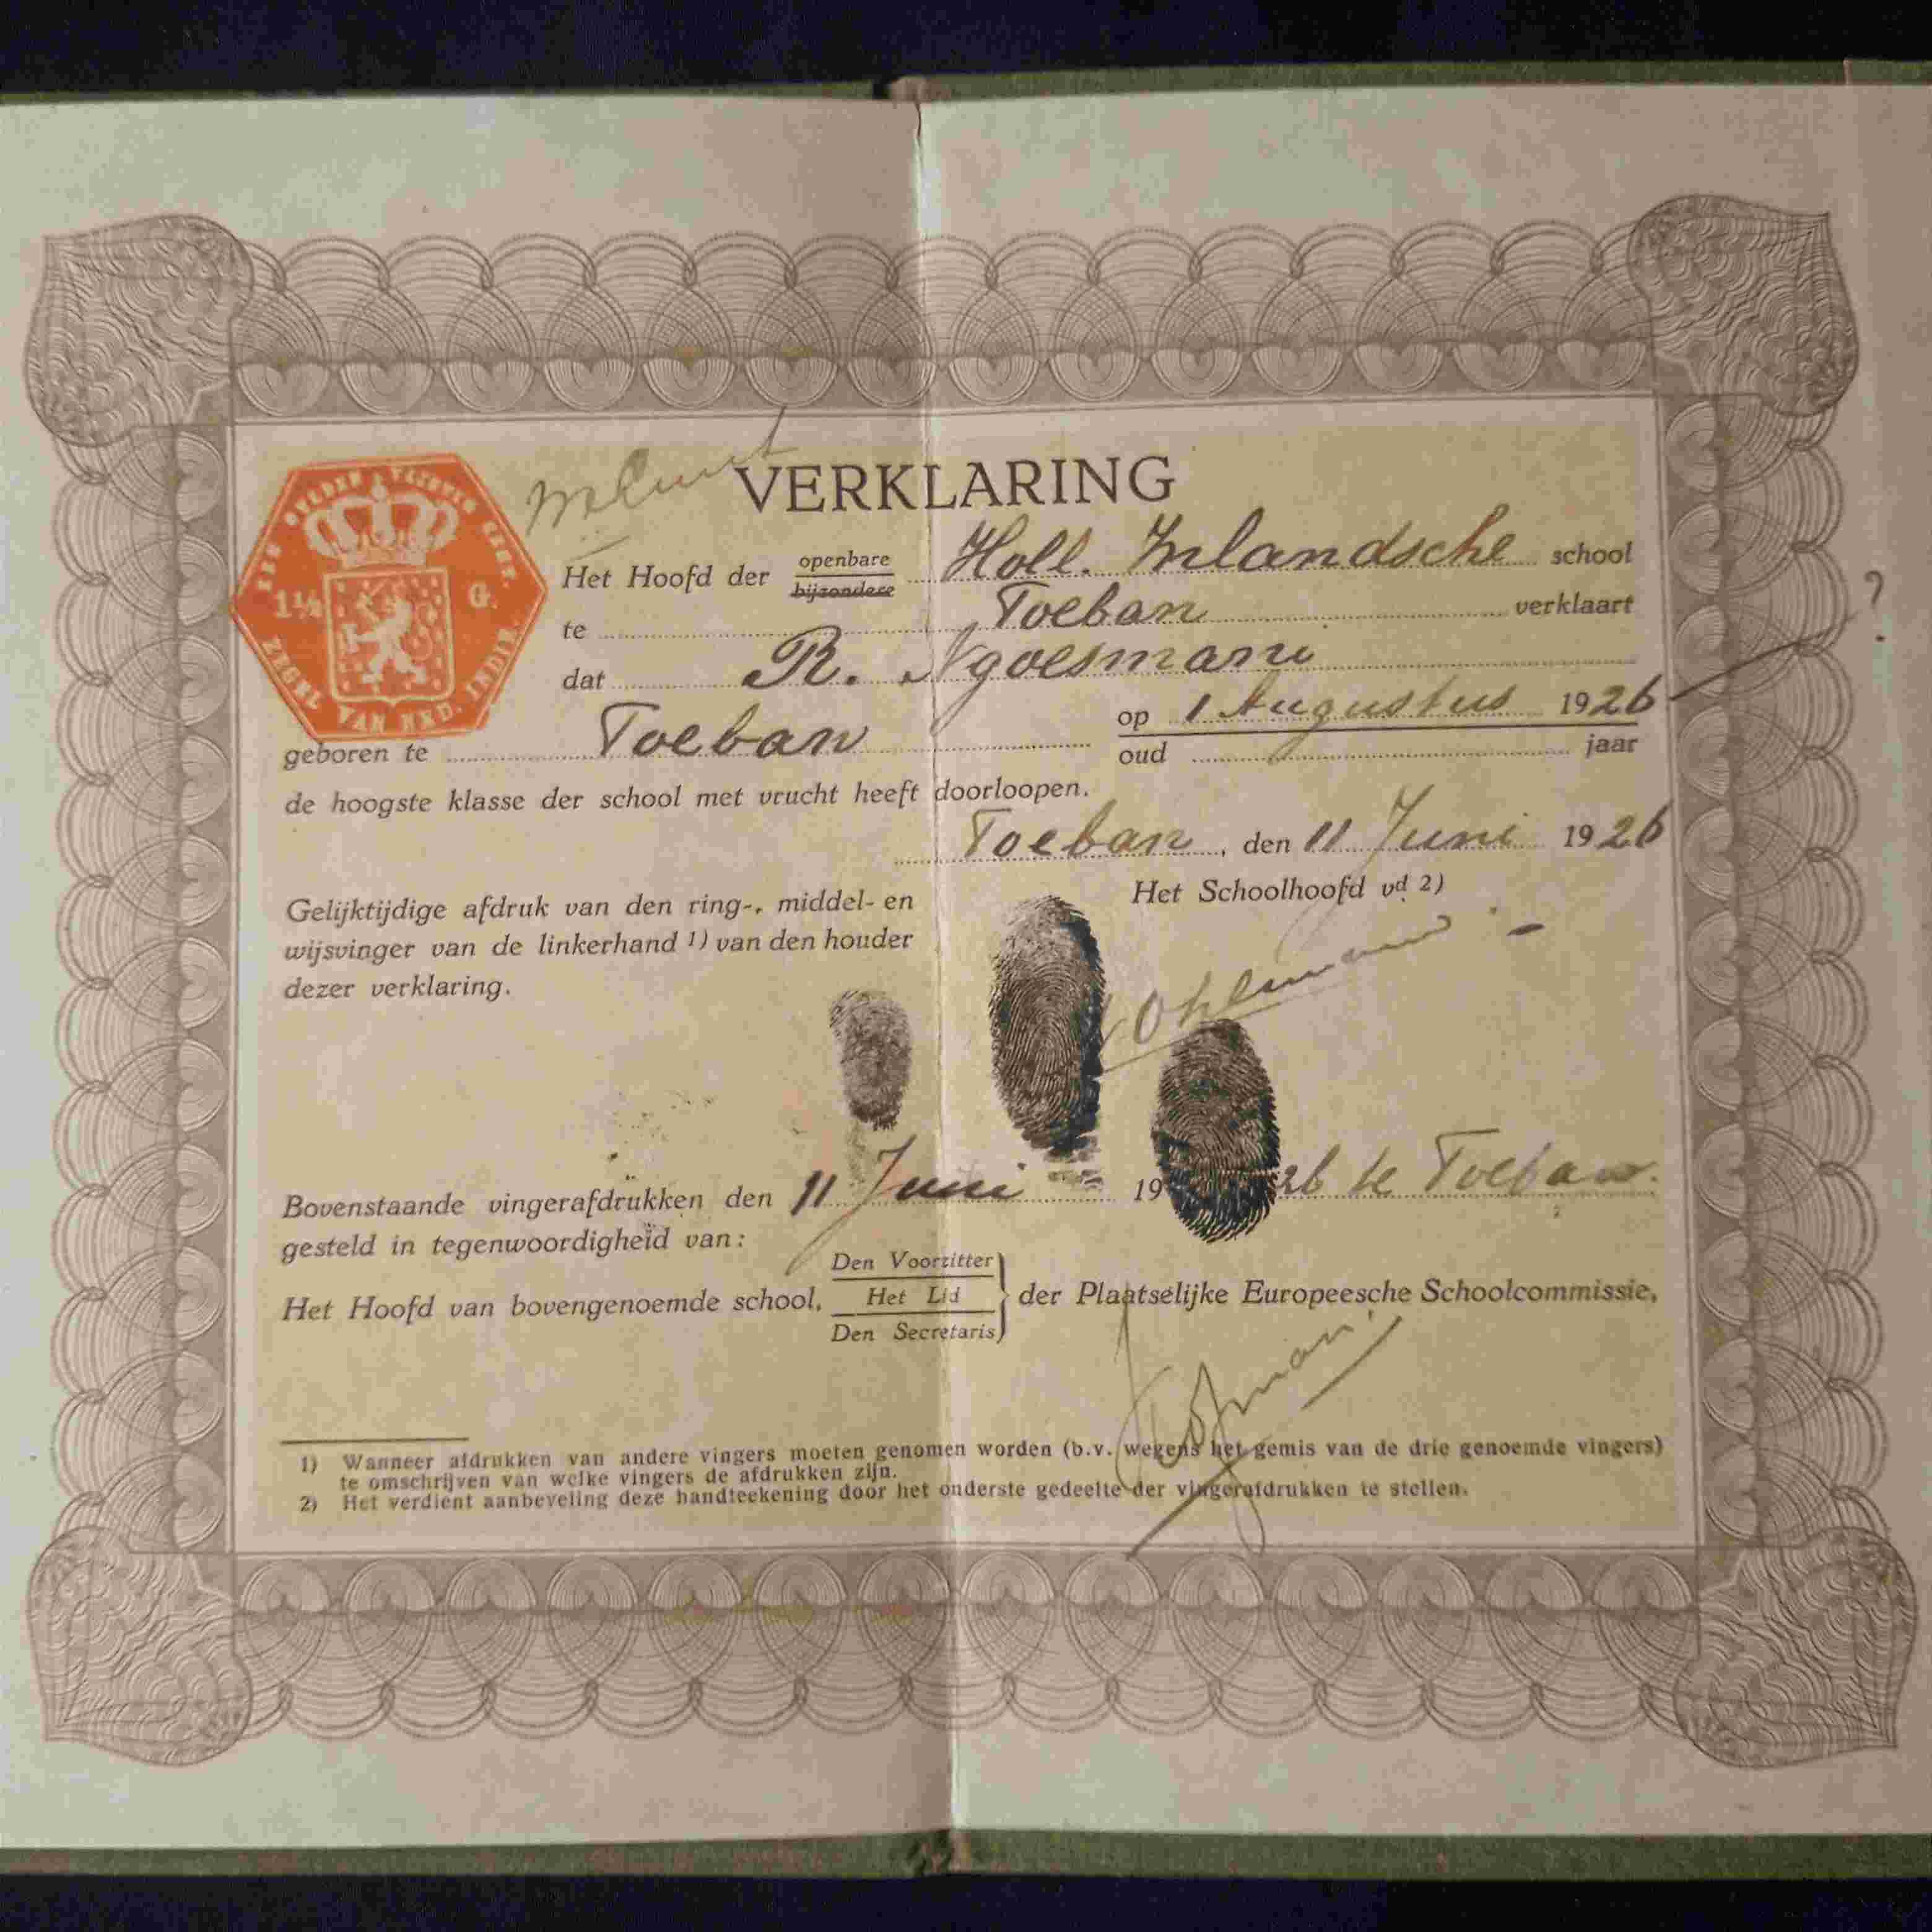 EEN GULDEN & VIJFTIG CENT.
1½ G.
ZEGEL VAN NED. INDIË.
VERKLARING
Het Hoofd der openbare bijzondere Holl. Inlandsche school
te Toeban verklaart
dat R. Ngoesmani
geboren te Toeban op 1 Augustus 1926
oud jaar
de hoogste klasse der school met vrucht heeft doorloopen.
Toeban, den 11 Juni 1926
Het Schoolhoofd vd 2)
Gelijktijdige afdruk van den ring-, middel- en
wijsvinger van de linkerhand 1) van den houder
dezer verklaring.
Ohlemann
Bovenstaande vingerafdrukken den 11 Juni 1926 te Toeban.
gesteld in tegenwoordigheid van:
Den Voorzitter
Het Hoofd van bovengenoemde school, Het Lid der Plaatselijke Europeesche Schoolcommissie,
Den Secretaris
1) Wanneer afdrukken van andere vingers moeten genomen worden (b.v. wegens het gemis van de drie genoemde vingers)
te omschrijven van welke vingers de afdrukken zijn.
2) Het verdient aanbeveling deze handteekening door het onderste gedeelte der vingerafdrukken te stellen.
?